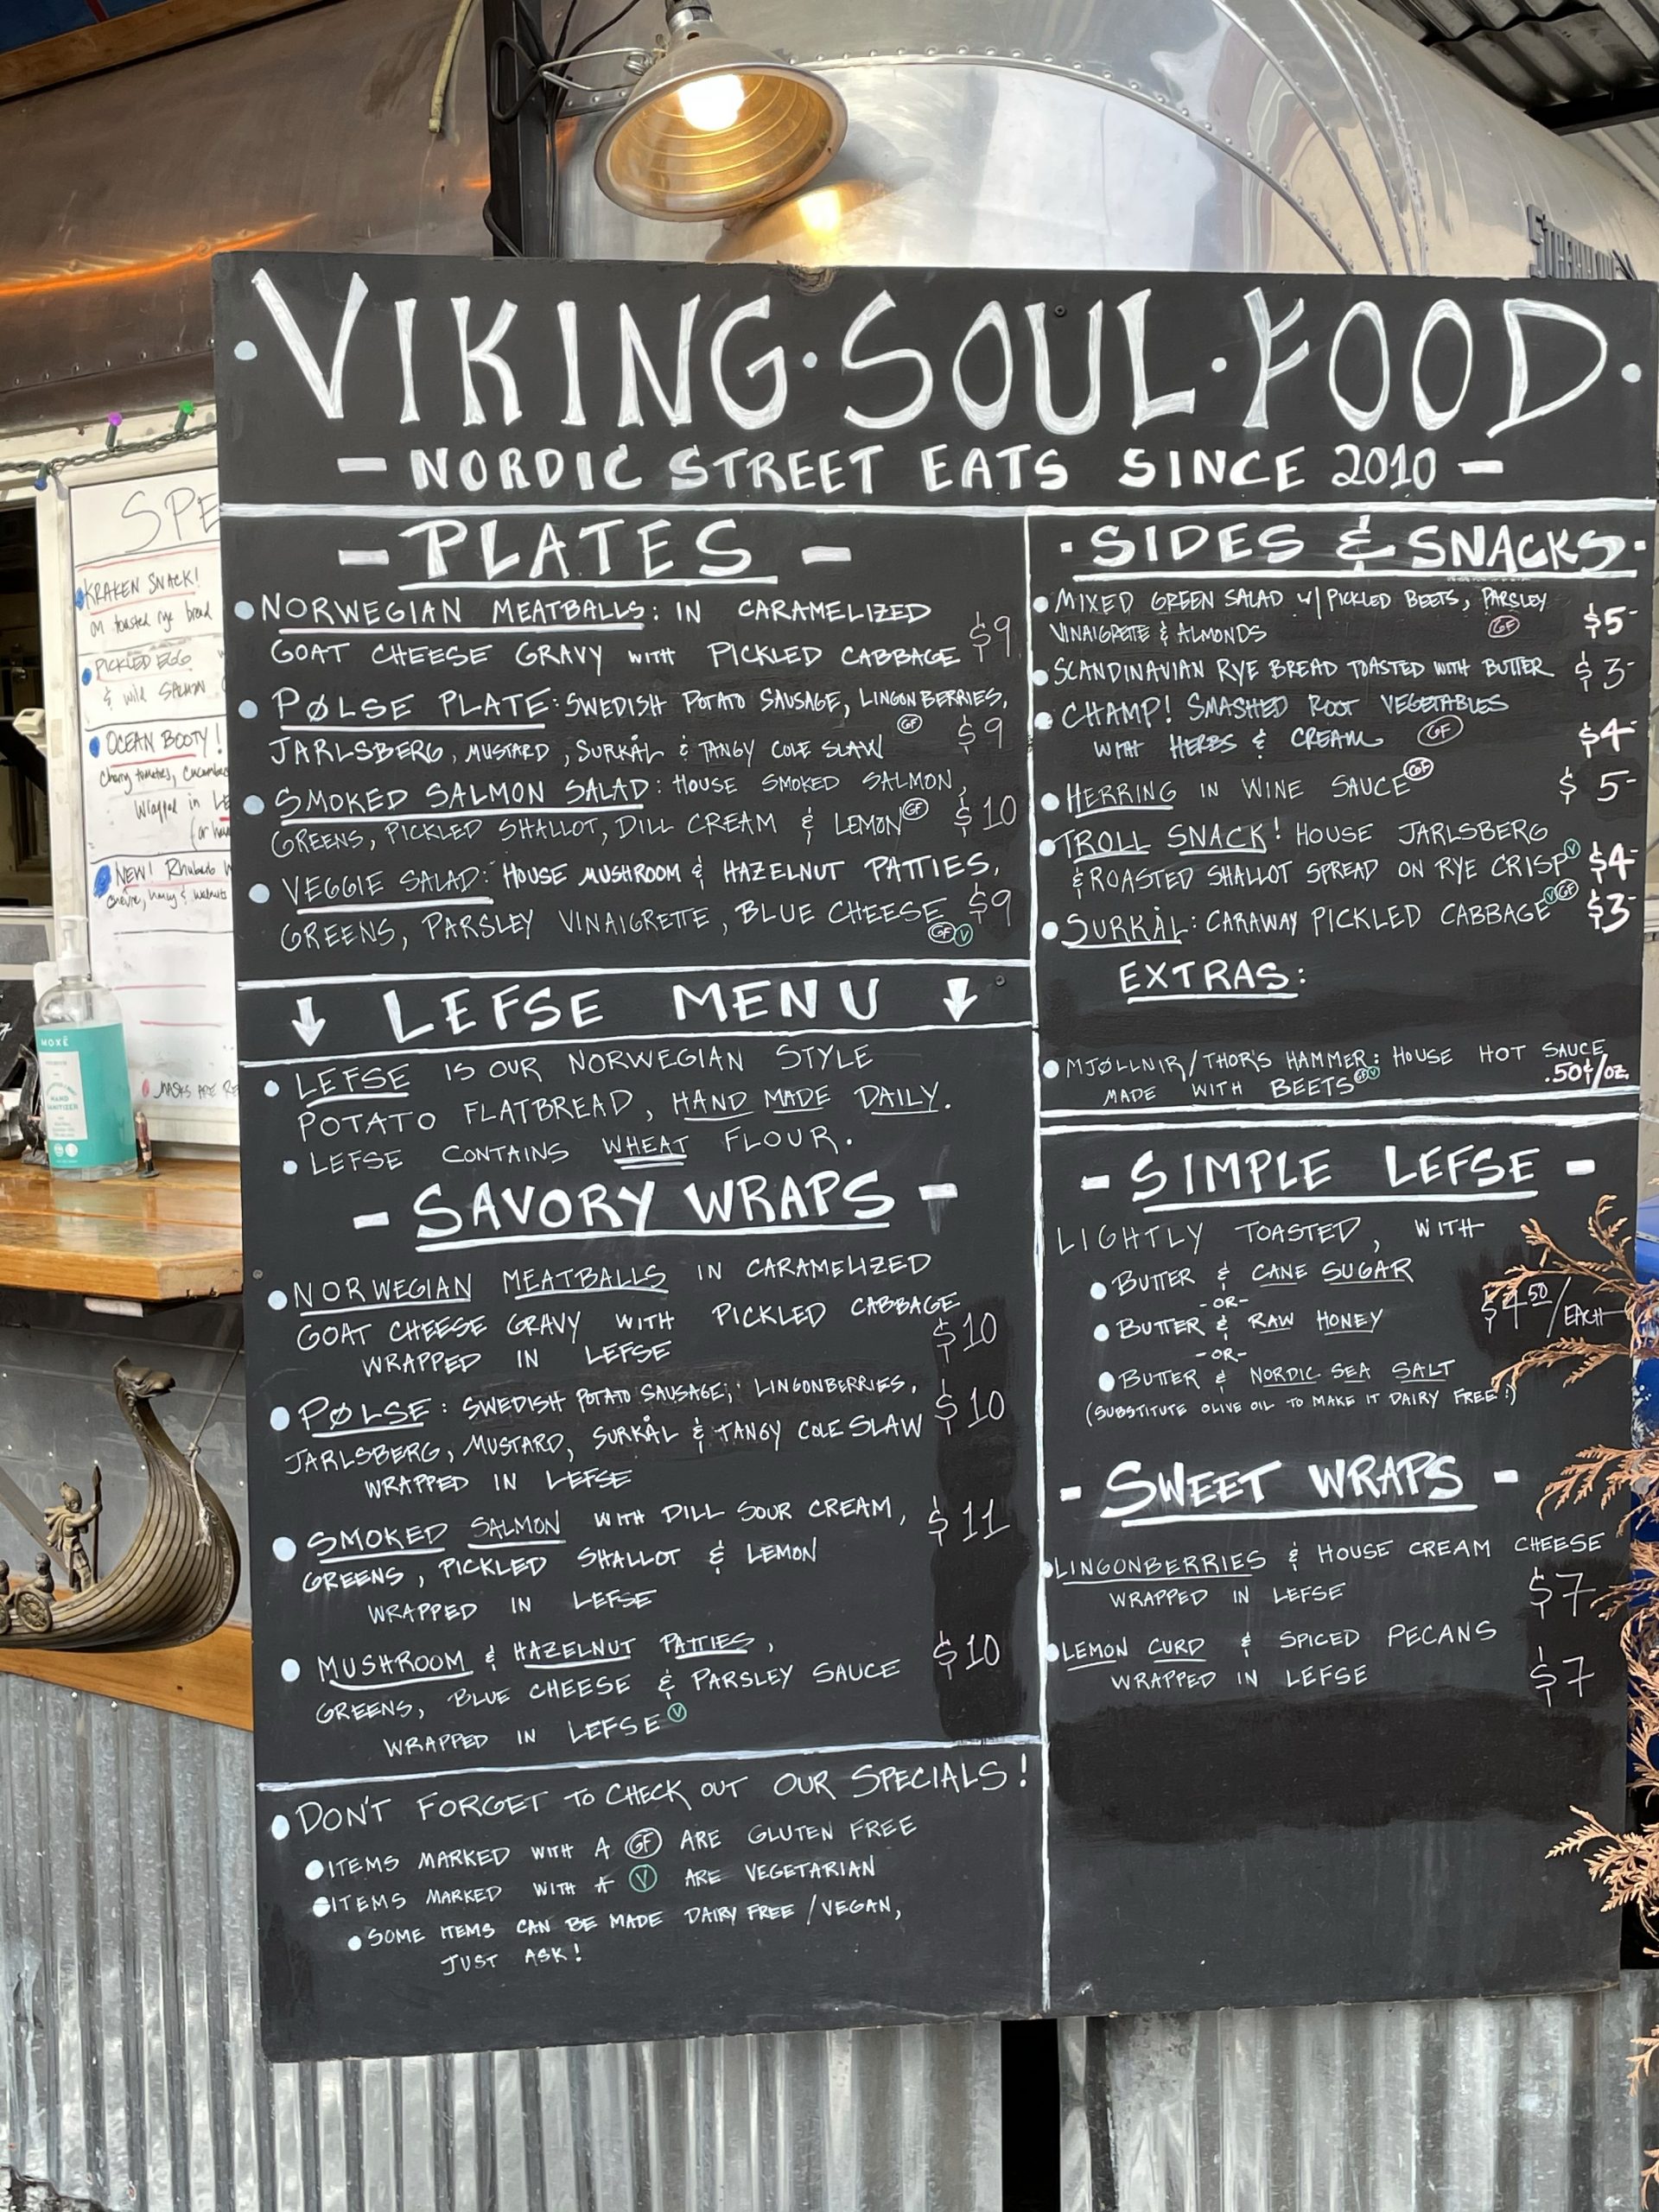 VIKING·SOUL·FOOD
- NORDIC STREET EATS SINCE 2010 -
- PLATES -
NORWEGIAN MEATBALLS: IN CARAMELIZED
GOAT CHEESE GRAVY WITH PICKLED CABBAGE $9
PØLSE PLATE: SWEDISH POTATO SAUSAGE, LINGONBERRIES,
JARLSBERG, MUSTARD, SURKÅL & TANGY COLE SLAW GF $9
SMOKED SALMON SALAD: HOUSE SMOKED SALMON,
GREENS, PICKLED SHALLOT, DILL CREAM & LEMON GF $10
VEGGIE SALAD: HOUSE MUSHROOM & HAZELNUT PATTIES,
GREENS, PARSLEY VINAIGRETTE, BLUE CHEESE GF V $9
LEFSE MENU
LEFSE IS OUR NORWEGIAN STYLE
POTATO FLATBREAD, HAND MADE DAILY.
LEFSE CONTAINS WHEAT FLOUR.
- SAVORY WRAPS -
NORWEGIAN MEATBALLS IN CARAMELIZED
GOAT CHEESE GRAVY WITH PICKLED CABBAGE
WRAPPED IN LEFSE $10
PØLSE: SWEDISH POTATO SAUSAGE, LINGONBERRIES,
JARLSBERG, MUSTARD, SURKÅL & TANGY COLE SLAW $10
WRAPPED IN LEFSE
SMOKED SALMON WITH DILL SOUR CREAM, $11
GREENS, PICKLED SHALLOT & LEMON
WRAPPED IN LEFSE
MUSHROOM & HAZELNUT PATTIES, $10
GREENS, BLUE CHEESE & PARSLEY SAUCE
WRAPPED IN LEFSE V
DON'T FORGET TO CHECK OUT OUR SPECIALS!
ITEMS MARKED WITH A GF ARE GLUTEN FREE
ITEMS MARKED WITH A V ARE VEGETARIAN
SOME ITEMS CAN BE MADE DAIRY FREE/VEGAN,
JUST ASK!
· SIDES & SNACKS ·
MIXED GREEN SALAD W/ PICKLED BEETS, PARSLEY
VINAIGRETTE & ALMONDS GF $5-
SCANDINAVIAN RYE BREAD TOASTED WITH BUTTER $3-
CHAMP! SMASHED ROOT VEGETABLES
WITH HERBS & CREAM GF $4-
HERRING IN WINE SAUCE GF $5-
TROLL SNACK! HOUSE JARLSBERG
& ROASTED SHALLOT SPREAD ON RYE CRISP V $4-
SURKÅL: CARAWAY PICKLED CABBAGE V GF $3-
EXTRAS:
MJØLLNIR/THOR'S HAMMER: HOUSE HOT SAUCE
MADE WITH BEETS GF V .50¢/OZ.
- SIMPLE LEFSE -
LIGHTLY TOASTED, WITH
BUTTER & CANE SUGAR
-OR-
BUTTER & RAW HONEY $4.50/EACH
-OR-
BUTTER & NORDIC SEA SALT
(SUBSTITUTE OLIVE OIL TO MAKE IT DAIRY FREE!)
- SWEET WRAPS -
LINGONBERRIES & HOUSE CREAM CHEESE
WRAPPED IN LEFSE $7
LEMON CURD & SPICED PECANS
WRAPPED IN LEFSE $7
SPE
KRAKEN SNACK!
on toasted rye bread
PICKLED EGG
& wild SALMON
OCEAN BOOTY!
cherry tomatoes, cucumber
Wrapped in LE
NEW! Rhubarb W
chevre, honey & walnuts
MASKS ARE RE
MOXĒ
HAND
SANITIZER